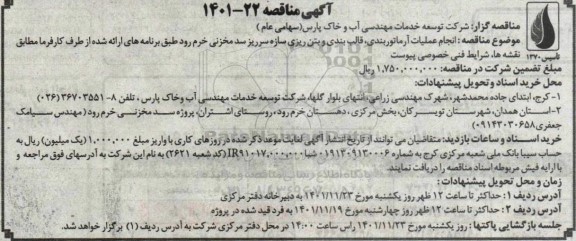 آگهی مناقصه ۲۲-۱۴۰۱
مناقصه گزار: شرکت توسعه خدمات مهندسی آب و خاک پارس(سهامی عام)
موضوع مناقصه: انجام عملیات آرماتوربندی، قالب بندی و بتن ریزی سازه سرریز سد مخزنی خرم رود طبق برنامه های ارائه شده از طرف کارفرما مطابق
نقشه ها، شرایط فنی خصوصی پیوست
تأسیس ۱۳۷۰
مبلغ تضمین شرکت در مناقصه: ۱,۷۵۰,۰۰۰,۰۰۰ ریال
محل خرید اسناد و تحویل پیشنهادات:
۱- کرج، ابتدای جاده محمدشهر، شهرک مهندسی زراعی، انتهای بلوار گلها، شرکت توسعه خدمات مهندسی آب وخاک پارس ، تلفن ۸- ۳۶۷۰۳۵۵۱ (۰۲۶)
۲-استان همدان، شهرستان تویسرکان، بخش مرکزی، دهستان خرم رود، روستای اشتران، پروژه سد مخزنی خرم رود (مهندس سیامک
جعفری۰۹۱۴۳۰۳۰۶۵۸)
خرید اسناد و ساعات بازدید: متقاضیان می توانند از تاریخ انتشار آگهی لغایت موعد ذکر شده در روزهای کاری با واریز مبلغ ۱,۰۰۰,۰۰۰ (یک میلیون) ریال به
حساب سیبا بانک ملی شعبه مرکزی کرج به شماره ۰۱۹۱۳۰۹۱۳۰۰۰۶ شبا (کد شعبه ۲۶۲۱) به نام این شرکت به آدرسهای فوق مراجعه و
با ارایه فیش مربوطه اسناد مناقصه را دریافت نمایند.
زمان و محل تحویل پیشنهادات:
آدرس ردیف ۱: حداکثر تا ساعت ۱۲ ظهر روز یکشنبه مورخ ۱۴۰۱/۱۱/۲۳ به دبیرخانه دفتر مرکزی
آدرس ردیف ۲: حداکثر تا ساعت ۱۲ ظهر روز چهارشنبه مورخ ۱۴۰۱/۱۱/۱۹ به فرد قید شده در پروژه
جلسه بازگشایی پاکتها : روز یکشنبه مورخ ۱۴۰۱/۱۱/۲۳ راس ساعت ۱۴:۰۰ در محل دفتر مرکزی شرکت به آدرس ردیف (۱) برگزار خواهد شد.